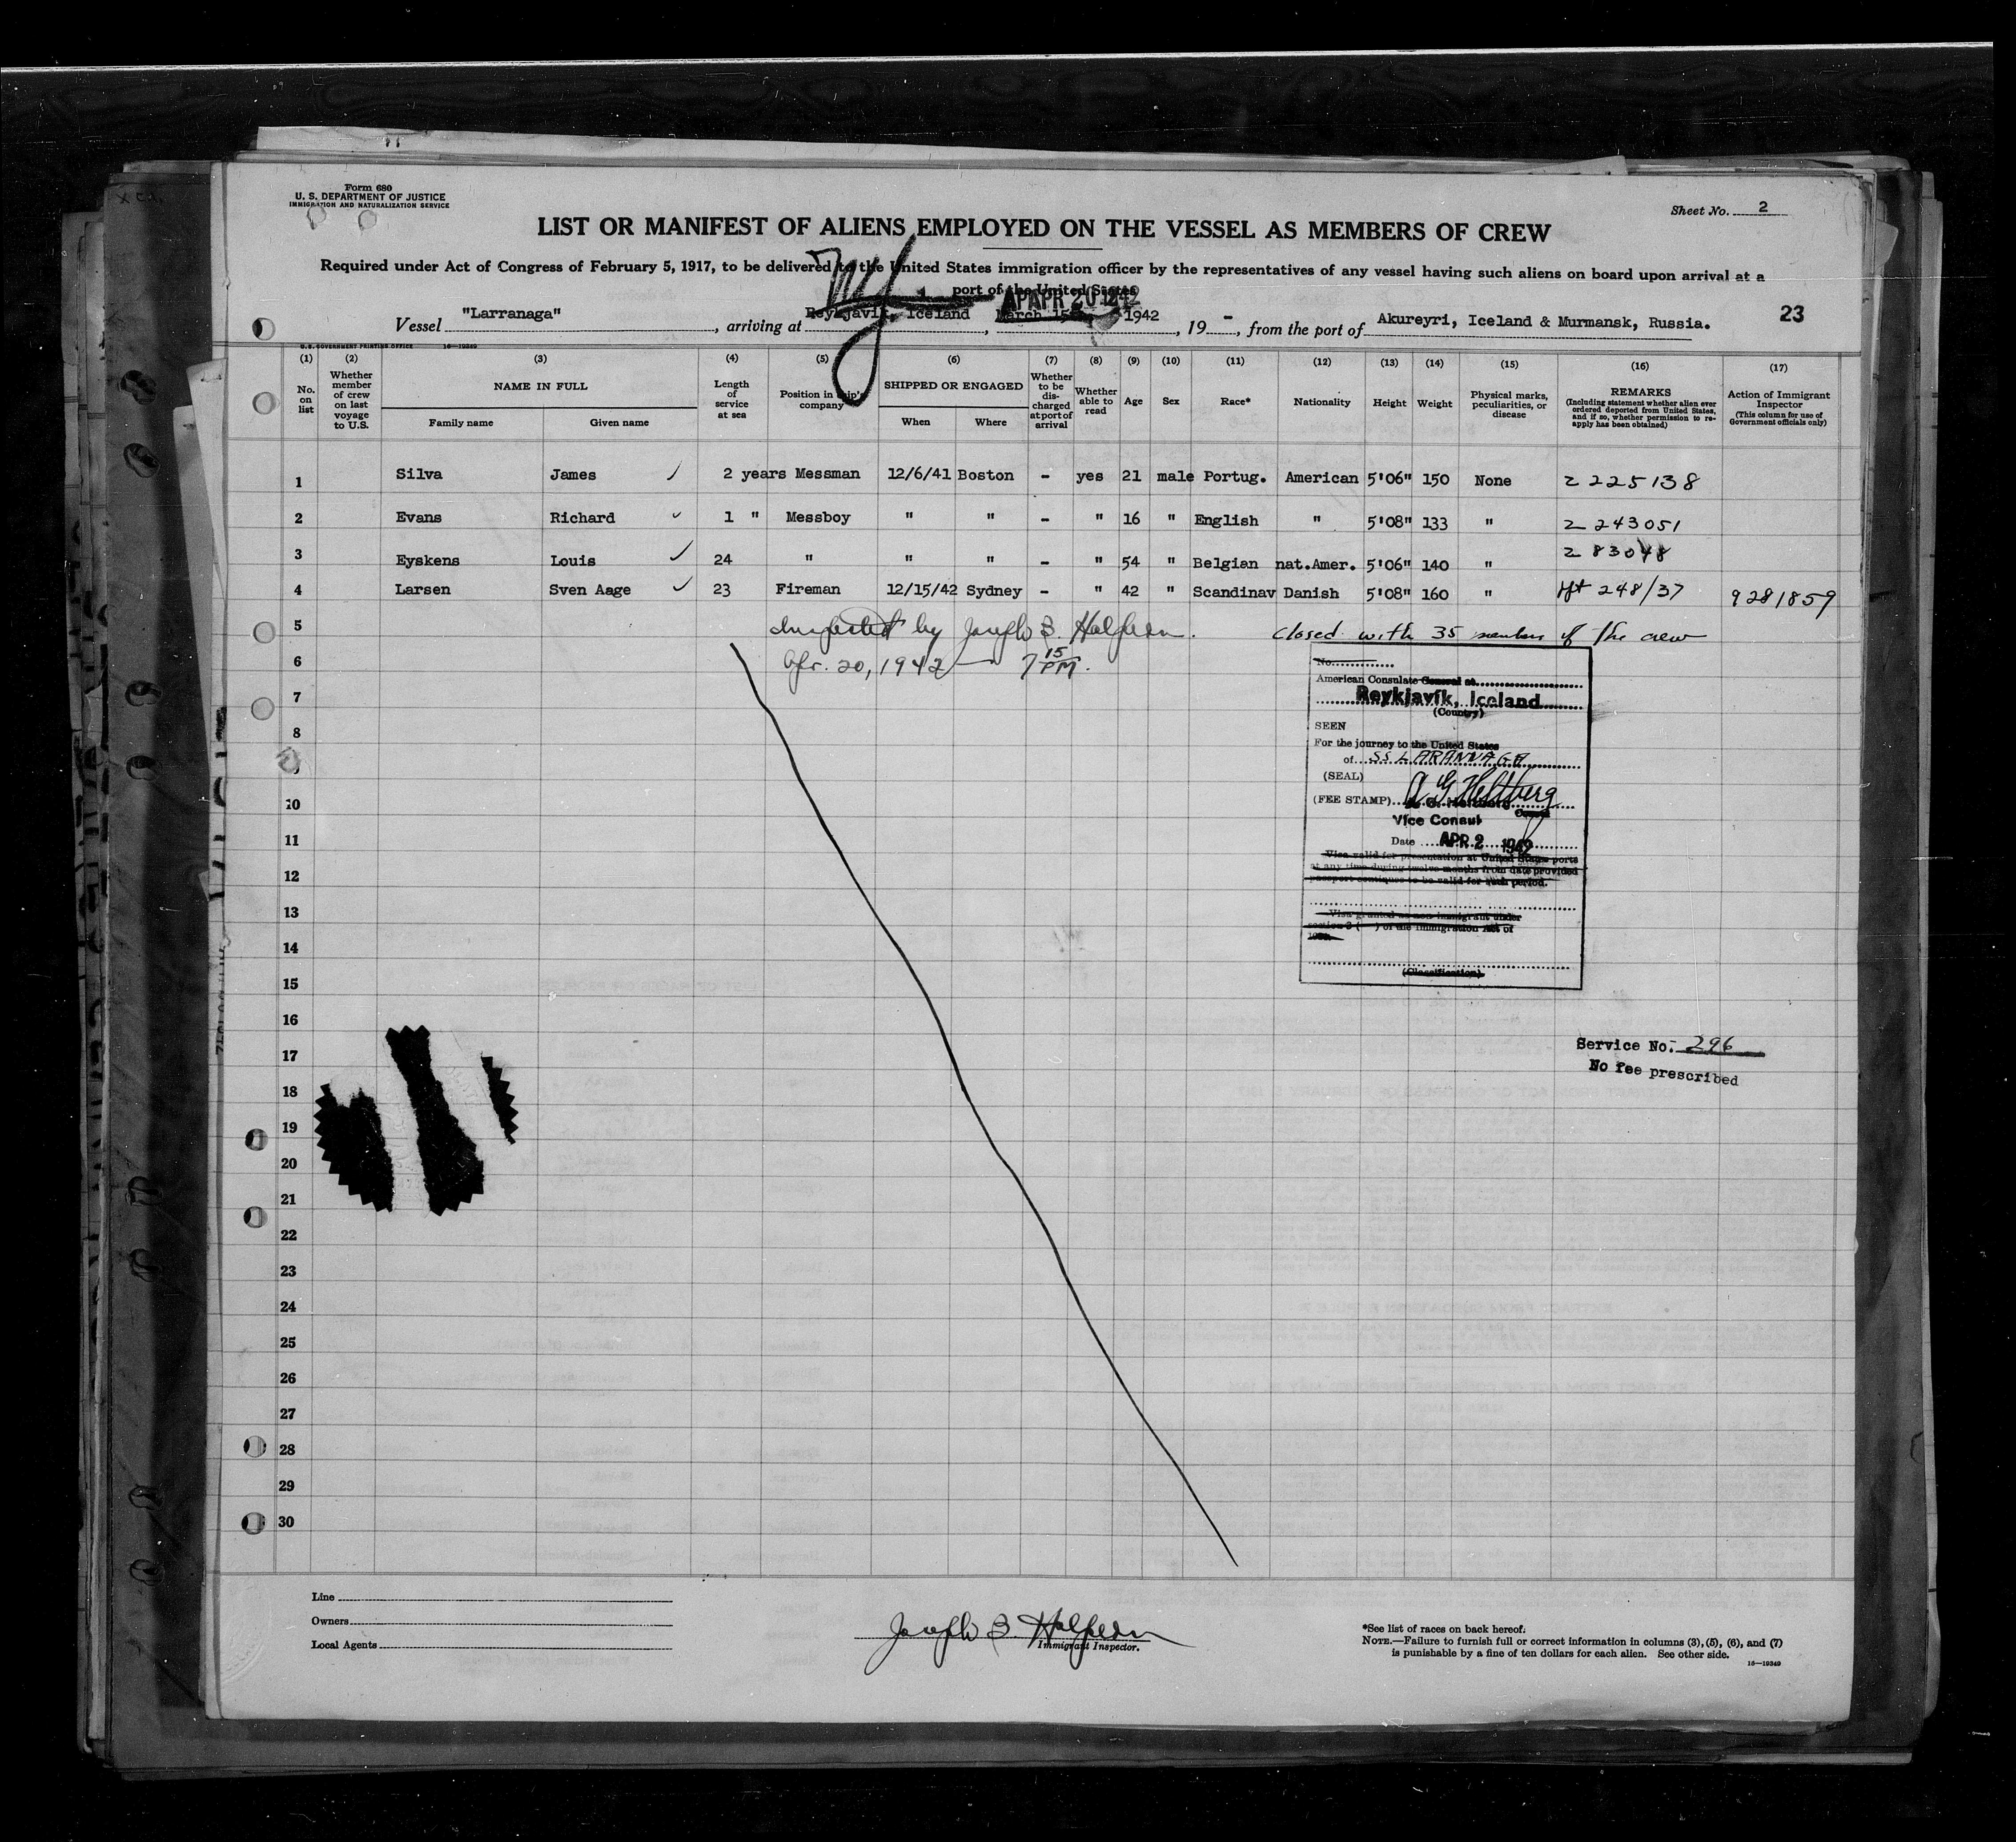 Form 680
U. S. DEPARTMENT OF JUSTICE
IMMIGRATION AND NATURALIZATION SERVICE
Sheet No. 2
LIST OR MANIFEST OF ALIENS EMPLOYED ON THE VESSEL AS MEMBERS OF CREW
Required under Act of Congress of February 5, 1917, to be delivered to the United States immigration officer by the representatives of any vessel having such aliens on board upon arrival at a
port of the United States
NY APR 20 1942
Vessel "Larranaga", arriving at Reykjavik, Iceland, March 15th 1942, 19 -, from the port of Akureyri, Iceland & Murmansk, Russia. 23
U.S. GOVERNMENT PRINTING OFFICE 16—19349
(1) (2) (3) (4) (5) (6) (7) (8) (9) (10) (11) (12) (13) (14) (15) (16) (17)
No. on list
Whether member of crew on last voyage to U.S.
NAME IN FULL
Family name Given name
Length of service at sea
Position in ship's company
SHIPPED OR ENGAGED
When Where
Whether to be discharged at port of arrival
Whether able to read
Age
Sex
Race*
Nationality
Height
Weight
Physical marks, peculiarities, or disease
REMARKS
(Including statement whether alien ever ordered deported from United States, and if so, whether permission to reapply has been obtained)
Action of Immigrant Inspector
(This column for use of Government officials only)
1 Silva James 2 years Messman 12/6/41 Boston - yes 21 male Portug. American 5'06" 150 None Z 225138
2 Evans Richard 1 " Messboy " " - " 16 " English " 5'08" 133 " Z 243051
3 Eyskens Louis 24 " " " - " 54 " Belgian nat.Amer. 5'06" 140 " Z 83048
4 Larsen Sven Aage 23 Fireman 12/15/42 Sydney - " 42 " Scandinav Danish 5'08" 160 " 248/37 9281859
5 Inspected by Joseph S. Halpern. Closed with 35 members of the crew
6 Apr. 20, 1942 — 7 15 PM.
7
8
9
10
11
12
13
14
15
16
17
18
19
20
21
22
23
24
25
26
27
28
29
30
No.
American Consulate General at
Reykjavik, Iceland
(Country)
SEEN
For the journey to the United States
of SS LARANNAGA
(SEAL)
A G Heltberg
(FEE STAMP) A. G. Heltberg
Consul
Vice Consul
Date APR 2 1942
Visa valid for presentation at United States ports
at any time during twelve months from date provided
passport continues to be valid for such period.
Visa granted as non-immigrant under
section 3 ( ) of the Immigration Act of
(Classification)
Service No. 296
No fee prescribed
Line
Owners
Local Agents
Joseph S Halpern
Immigrant Inspector.
*See list of races on back hereof.
NOTE.—Failure to furnish full or correct information in columns (3), (5), (6), and (7)
is punishable by a fine of ten dollars for each alien. See other side.
16—19349